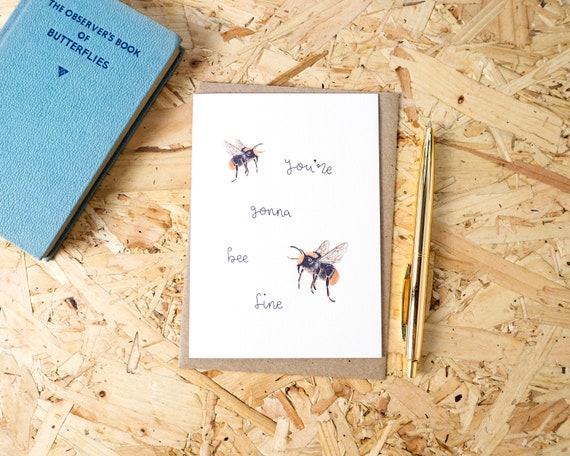 THE OBSERVER'S BOOK
OF
BUTTERFLIES
you're
gonna
bee
fine